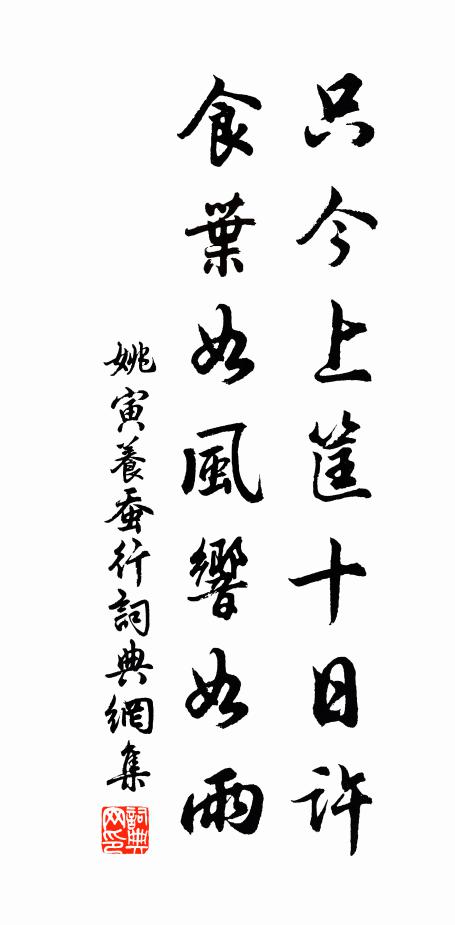 只今上筐十日許
食葉如風響如雨
姚寅養蚕行詞典網集
詞典
网印